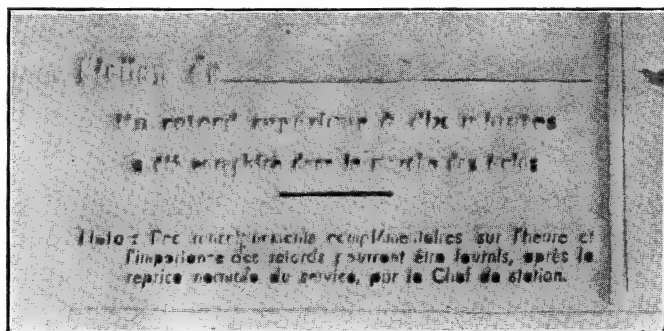 Station de
Un retard supérieur à dix minutes
a été dans la marche des trains
Nota : Des renseignements complémentaires sur l'heure et
l'importance des retards pourront être fournis, après la
reprise normale du service, par le Chef de station.